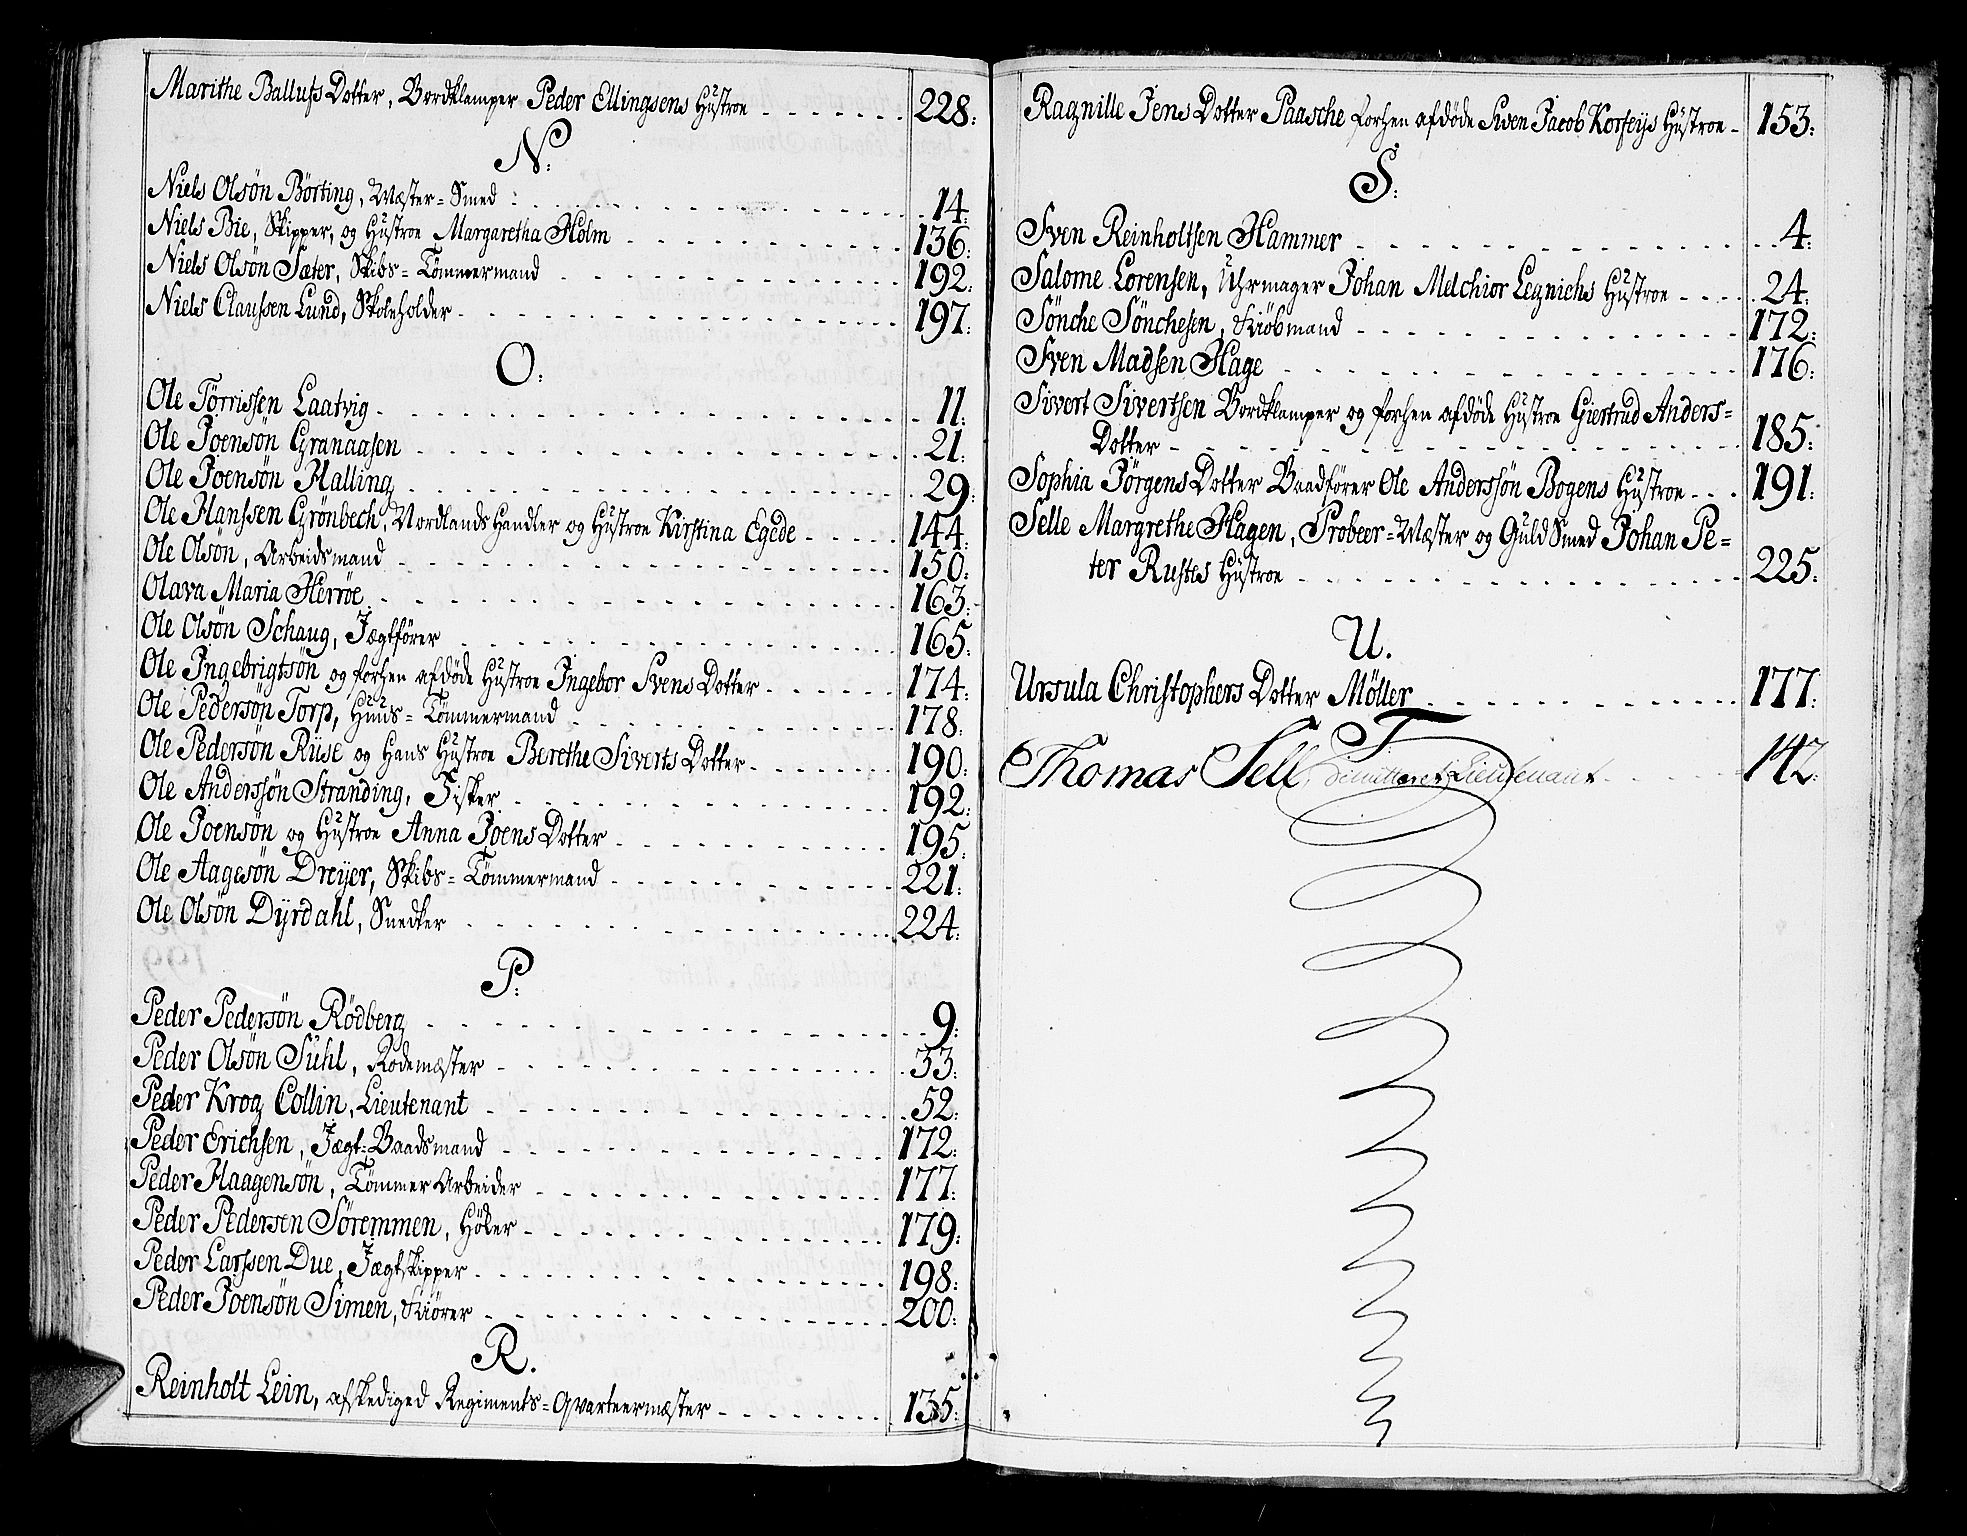 Marithe Ballufs Dotter, Bordklamper Peder Ellingsens Hustroe 228:
N:
Niels Olsön Börting, Mæster=Smed 14:
Niels Bie, Skipper, og Hustroe Margaretha Holm 136:
Niels Olsön Sæter, Skibs=Tömmermand 192:
Niels Claussen Lund, Skoleholder 197:
O:
Ole Törrissen Laatvig 11:
Ole Joensön Granaasen 21:
Ole Joensön Halling 29:
Ole Hanssen Grönbech, Nordlands Handler og Hustroe Kirstina Egede 144:
Ole Olsön, Arbeidsmand 150:
Olava Maria Herröe 163:
Ole Olsön Schaug, Jægtförer 165:
Ole Ingebrigtsön og forhen afdöde Hustroe Ingebor Svens Dotter 174:
Ole Pedersön Torp, Huus=Tömmermand 178:
Ole Pedersön Riise og Hans Hustroe Berethe Siverts Dotter 190:
Ole Anderssön Stranding, Fisker 192:
Ole Joensön og Hustroe Anna Joens Dotter 195:
Ole Aagesön Dreyer, Skibs=Tömmermand 221:
Ole Olsön Dyrdahl, Snedker 224:
P:
Peder Pedersön Rödberg 9:
Peder Olsön Suhl, Rodemæster 33:
Peder Krog Collin, Lieutenant 52:
Peder Erichsen, Jægt=Baadsmand 172:
Peder Haagensön, Tömmer Arbeider 177:
Peder Pedersen Söremmen, Höker 179:
Peder Larssen Due, Jægtskipper 198:
Peder Joensön Simen, Kiörer 200:
R.
Reinholt Lein, afskediged Regiments=Qvarteermæster 135:
Ragnille Jens Dotter Paasche forhen afdöde Sven Jacob Korfeys Hustroe 153:
S:
Sven Reinholtsen Hammer 4:
Salome Lorensen, Uhrmager Johan Melchior Legnichs Hustroe 24:
Sönche Sönchesen, Kiöbmand 172:
Sven Madsen Hage 176:
Sivert Sivertsen Bordklamper og forhen afdöde Hustroe Giertrud Anders=
Dotter 185:
Sophia Jörgens Dotter Baadförer Ole Anderssön Bogens Hustroe 191:
Selle Margrethe Hagen, Probeer=Mæster og Guld Smed Johan Pe=
ter Rustes Hustroe 225:
U.
Ursula Christophers Dotter Möller 177:
T
Thomas Sell, dimitteret Lieutenant 142: